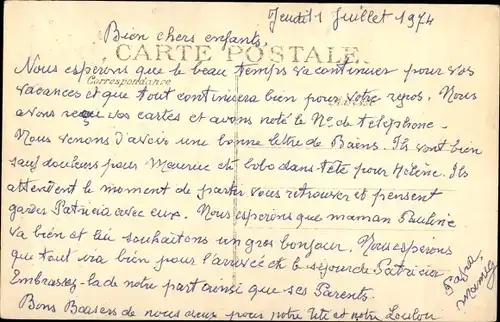 Jeudi 1 Juillet 1974
Bien chers enfants,
CARTE POSTALE
Correspondance
Nous espérons que le beau temps va continuer pour vos
vacances et que tout continuera bien pour votre repos. Nous
avons reçu vos cartes et avons noté le No de téléphone.
Nous venons d'avoir une bonne lettre de Bains. Ils vont bien
sauf douleurs pour Maurice et bobo dans tête pour Hélène. Ils
attendent le moment de partir vous retrouver et pensent
garder Patricia avec eux. Nous espérons que maman Pauline
va bien et lui souhaitons un gros bonjour. Nous espérons
que tout ira bien pour l'arrivée et le séjour de Patricia
Embrassez-la de notre part ainsi que ses Parents.
Bons Baisers de nous deux pour notre Tété et notre Loulou
Papa, Mamie